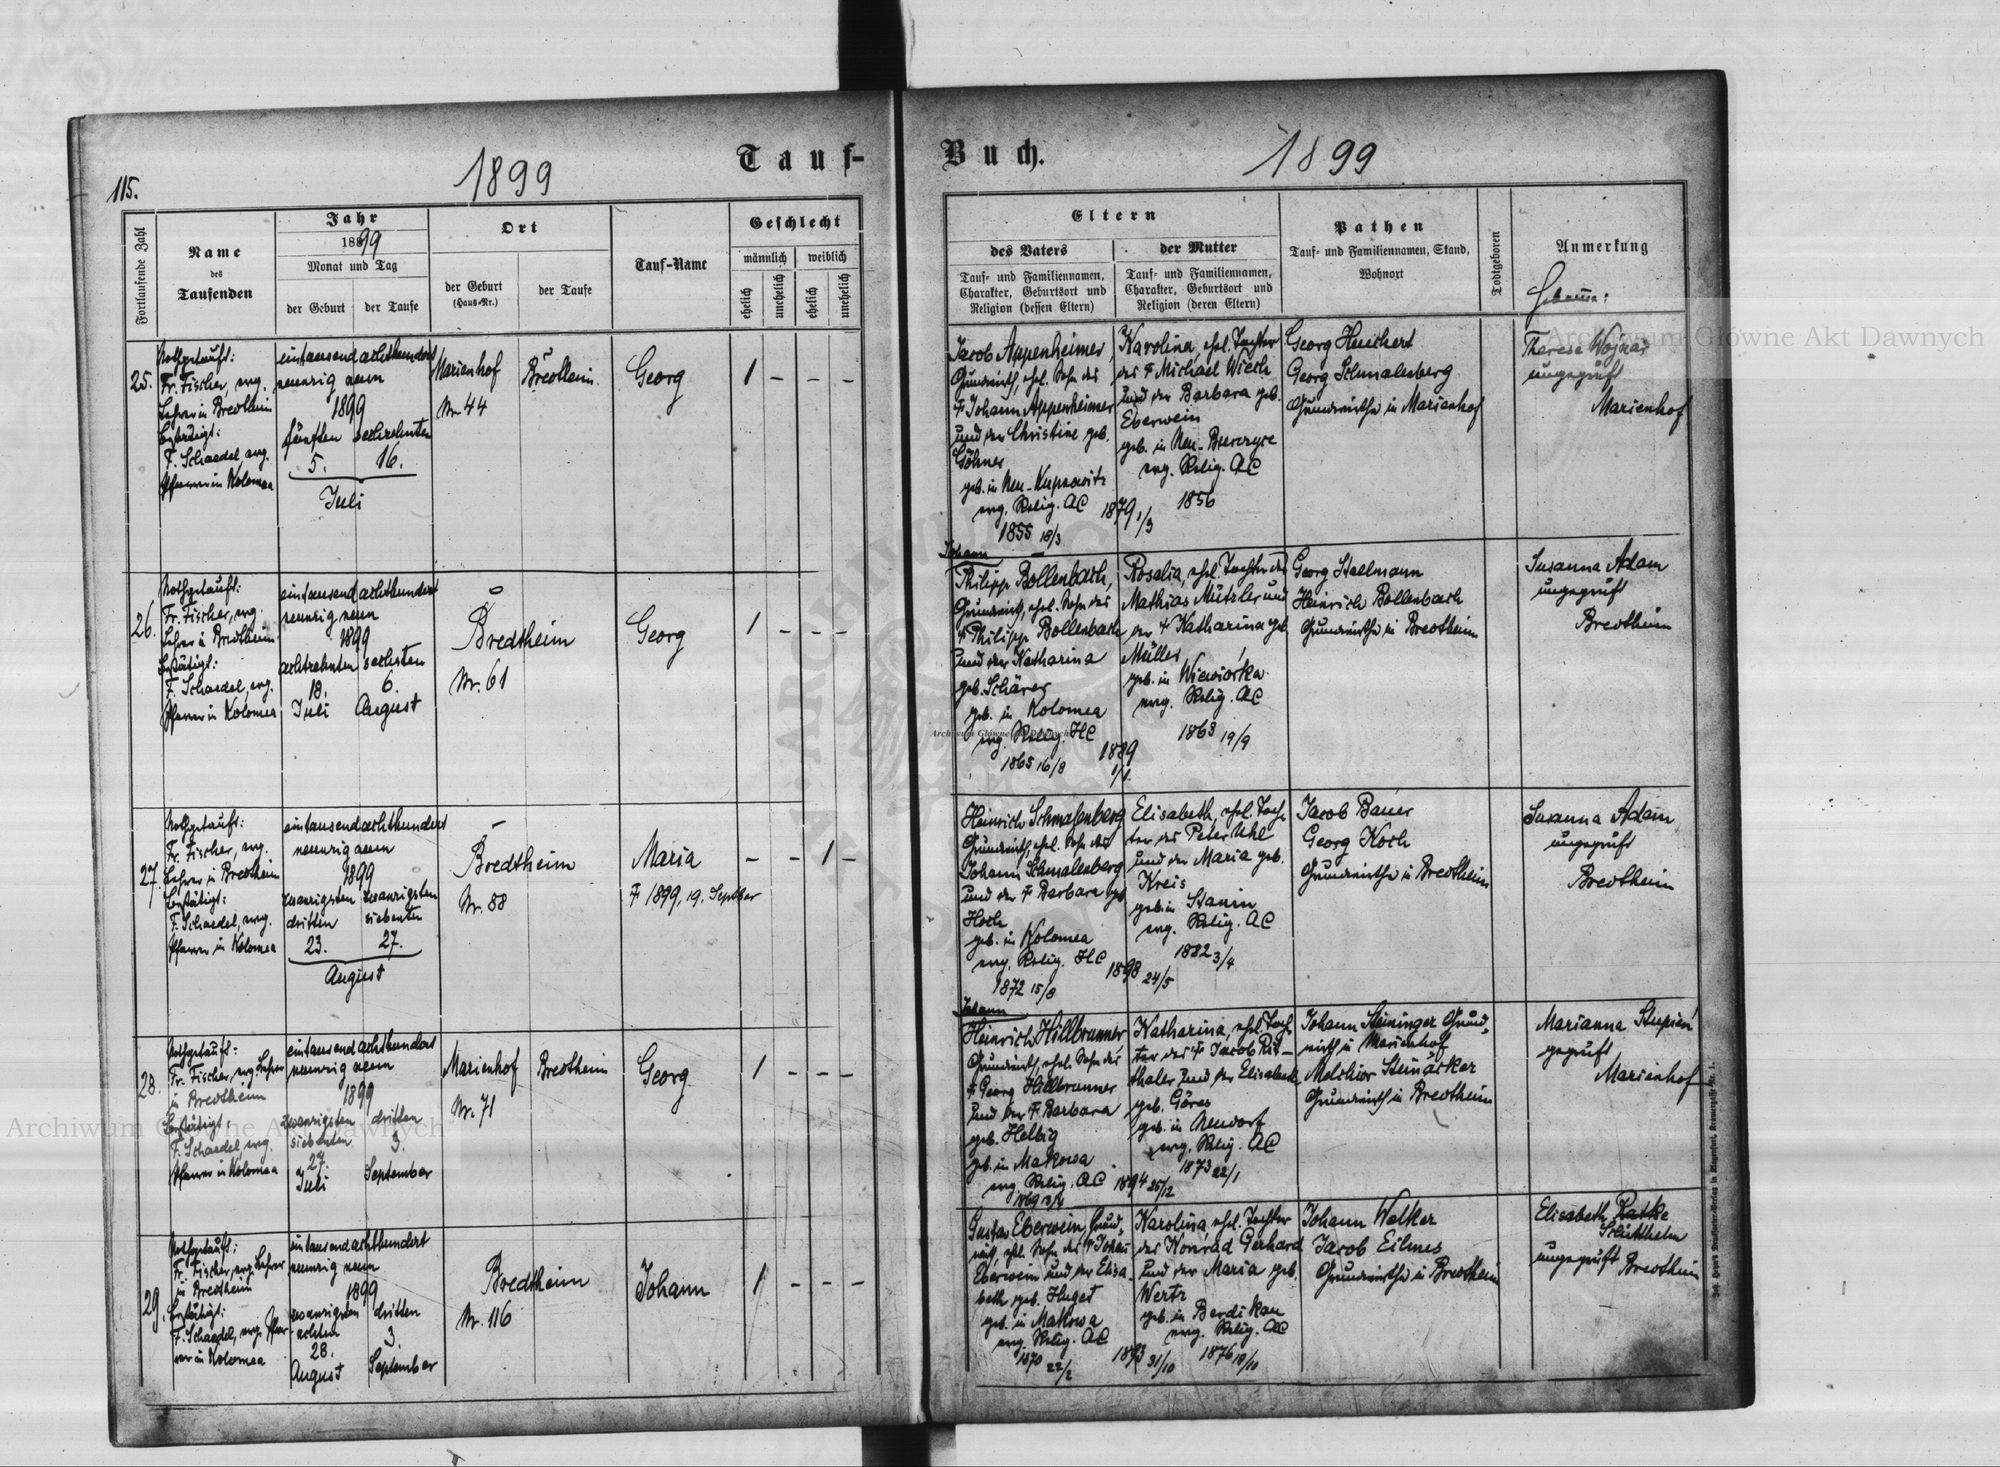 1899
Tauf-
115.
Fortlaufende Zahl
Name
des
Taufenden
Jahr
1899
Monat und Tag
der Geburt
der Taufe
Ort
der Geburt
(Haus-Nr.)
der Taufe
Tauf-Name
Geschlecht
männlich
weiblich
ehelich
unehelich
ehelich
unehelich
25.
Nothgetauft:
Fr. Fischer, evg.
Lehrer in Bredtheim
bestätigt:
F. Schaedel, evg.
Pfarrer in Kolomea
eintausendachthundert
neunzig neun
1899
fünften sechzehnten
5. 16.
Juli
Marienhof
Nr. 44
Bredtheim
Georg
1 - - -
26.
Nothgetauft:
Fr. Fischer, evg.
Lehrer in Bredtheim
bestätigt:
F. Schaedel, evg.
Pfarrer in Kolomea
eintausendachthundert
neunzig neun
1899
achtzehnten sechsten
18. 6.
Juli August
Bredtheim
Nr. 61
Georg
1 - - -
27.
Nothgetauft:
Fr. Fischer, evg.
Lehrer in Bredtheim
bestätigt:
F. Schaedel, evg.
Pfarrer in Kolomea
eintausendachthundert
neunzig neun
1899
zwanzigsten zwanzigsten
dritten siebenten
23. 27.
August
Bredtheim
Nr. 88
Maria
- - 1 -
28.
Nothgetauft:
Fr. Fischer, evg. Lehrer
in Bredtheim
bestätigt:
F. Schaedel, evg.
Pfarrer in Kolomea
eintausendachthundert
neunzig neun
1899
zwanzigsten dritten
siebenten
27. 3.
Juli September
Marienhof
Nr. 71
Bredtheim
Georg
1 - - -
29.
Nothgetauft:
Fr. Fischer, evg. Lehrer
in Bredtheim
bestätigt:
F. Schaedel, evg. Pfar-
rer in Kolomea
eintausendachthundert
neunzig neun
1899
dritten
achten
28. 3.
August September
Bredtheim
Nr. 116
Johann
1 - - -
Buch.
1899
Eltern
des Vaters
Tauf- und Familiennamen,
Charakter, Geburtsort und
Religion (dessen Eltern)
der Mutter
Tauf- und Familiennamen,
Charakter, Geburtsort und
Religion (deren Eltern)
Pathen
Tauf- und Familiennamen, Stand,
Wohnort
Todtgeboren
Anmerkung
Jacob Appenheimer,
Grundwirth, ehel. Sohn des
† Johann Appenheimer
und der Christine geb.
Göhner
evg. Relig. AC
1855 18/3
1879 1/3
Karolina, ehel. Tochter
des † Michael Wiech
und der Barbara geb.
Eberwein
evg. Relig. AC
1856
Georg Heuchert
Georg Schmalenberg
Grundwirthe in Marienhof
Therese Wojnar
ungeprüft
Marienhof
Johann
Philipp Bollenbach,
Grundwirth, ehel. Sohn des
† Philipp Bollenbach
und der Katharina
geb. Schärer
geb. in Kolomea
evg. Relig. HC
1865 16/8
1889
1/1
Rosalia, ehel. Tochter des
Mathias Mützler und
der † Katharina geb.
Müller
geb. in Wiewiorka
evg. Relig. AC
1863 19/9
Georg Stallmann
Heinrich Bollenbach
Grundwirthe in Bredtheim
Susanna Adam
ungeprüft
Bredtheim
Heinrich Schmalenberg
Grundwirth, ehel. Sohn des
Johann Schmalenberg
und der † Barbara geb.
geb. in Kolomea
evg. Relig. HC
1872 15/8
1898 24/5
Elisabeth, ehel. Toch-
ter des Peter Uhl
und der Maria geb.
Kreis
geb. in Stanin
evg. Relig. AC
1882 3/4
Jacob Bauer
Georg Koch
Grundwirthe in Bredtheim
Susanna Adam
ungeprüft
Bredtheim
Johann
Heinrich Hillbrunner
Grundwirth, ehel. Sohn des
† Georg Hillbrunner
und der † Barbara
geb. Helbig
geb. in Makowa
evg. Relig. AC
1894 25/12
Katharina, ehel. Toch-
ter des † Jacob Rit-
thaler und der Elisabeth
geb. Göres
geb. in Neudorf
evg. Relig. AC
1873 22/1
Johann Steininger Grund-
wirth in Marienhof
Melchior Steinäcker
Grundwirth in Bredtheim
Marianna Stupień
geprüft
Marienhof
Gustav Eberwein, Grund-
wirth, ehel. Sohn des † Johann
Eberwein und der Elisa-
beth geb. Huget
geb. in Makowa
evg. Relig. AC
1870 22/2
1893 31/10
Karolina, ehel. Tochter
des Konrad Gerhard
und der Maria geb.
Wertz
geb. in Berdikau
evg. Relig. AC
1876 18/10
Johann Welker
Jacob Eilmes
Grundwirthe in Bredtheim
Elisabeth
ungeprüft Bredtheim
Archiwum Główne Akt Dawnych
Archiwum Główne Akt Dawnych
Archiwum Główne Akt Dawnych